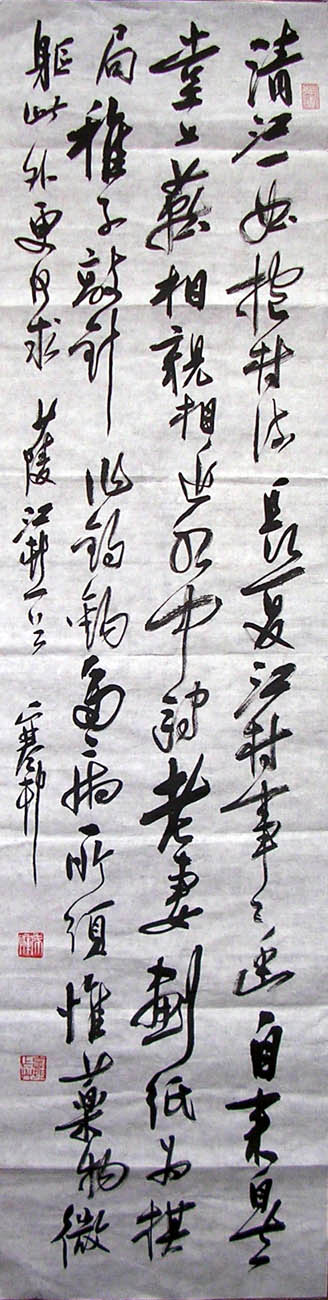 清江一曲抱村流長夏江村事々幽自来自去
堂上燕相親相近水中鷗老妻劃紙為棋
局稚子敲針作釣鉤多病所須惟藥物微
軀此外更何求 少陵江村一首 寒邨